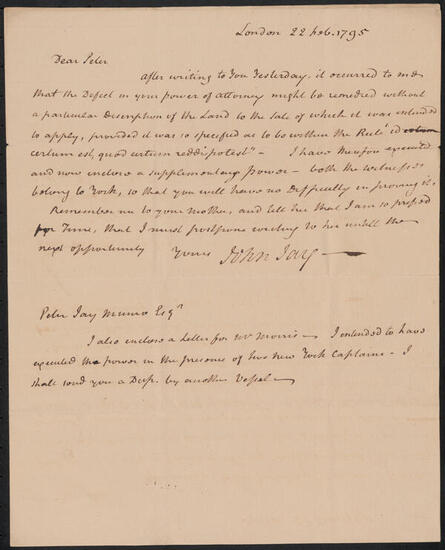 London 22 Feb. 1795
Dear Peter
After writing to You Yesterday, it occurred to me
that the Defect in your power of attorney might be remedied without
a particular description of the Land to the Sale of which it was intended
to apply, provided it was so specified as to be within the Rule "id
certum est, quod certum reddi potest" — I have therefore executed
and now enclose a supplementary Power — both the witnesses
belong to York, so that you will have no Difficulty in proving it.
Remember me to your Mother, and tell her that I am so pressed
for Time, that I must postpone writing to her untill the
next opportunity Yours John Jay —
Peter Jay Munro Esqr
I also enclose a Letter for Mr Morris — I intended to have
executed the power in the presence of two New York Captains — I
shall send you a Dup. by another Vessel —